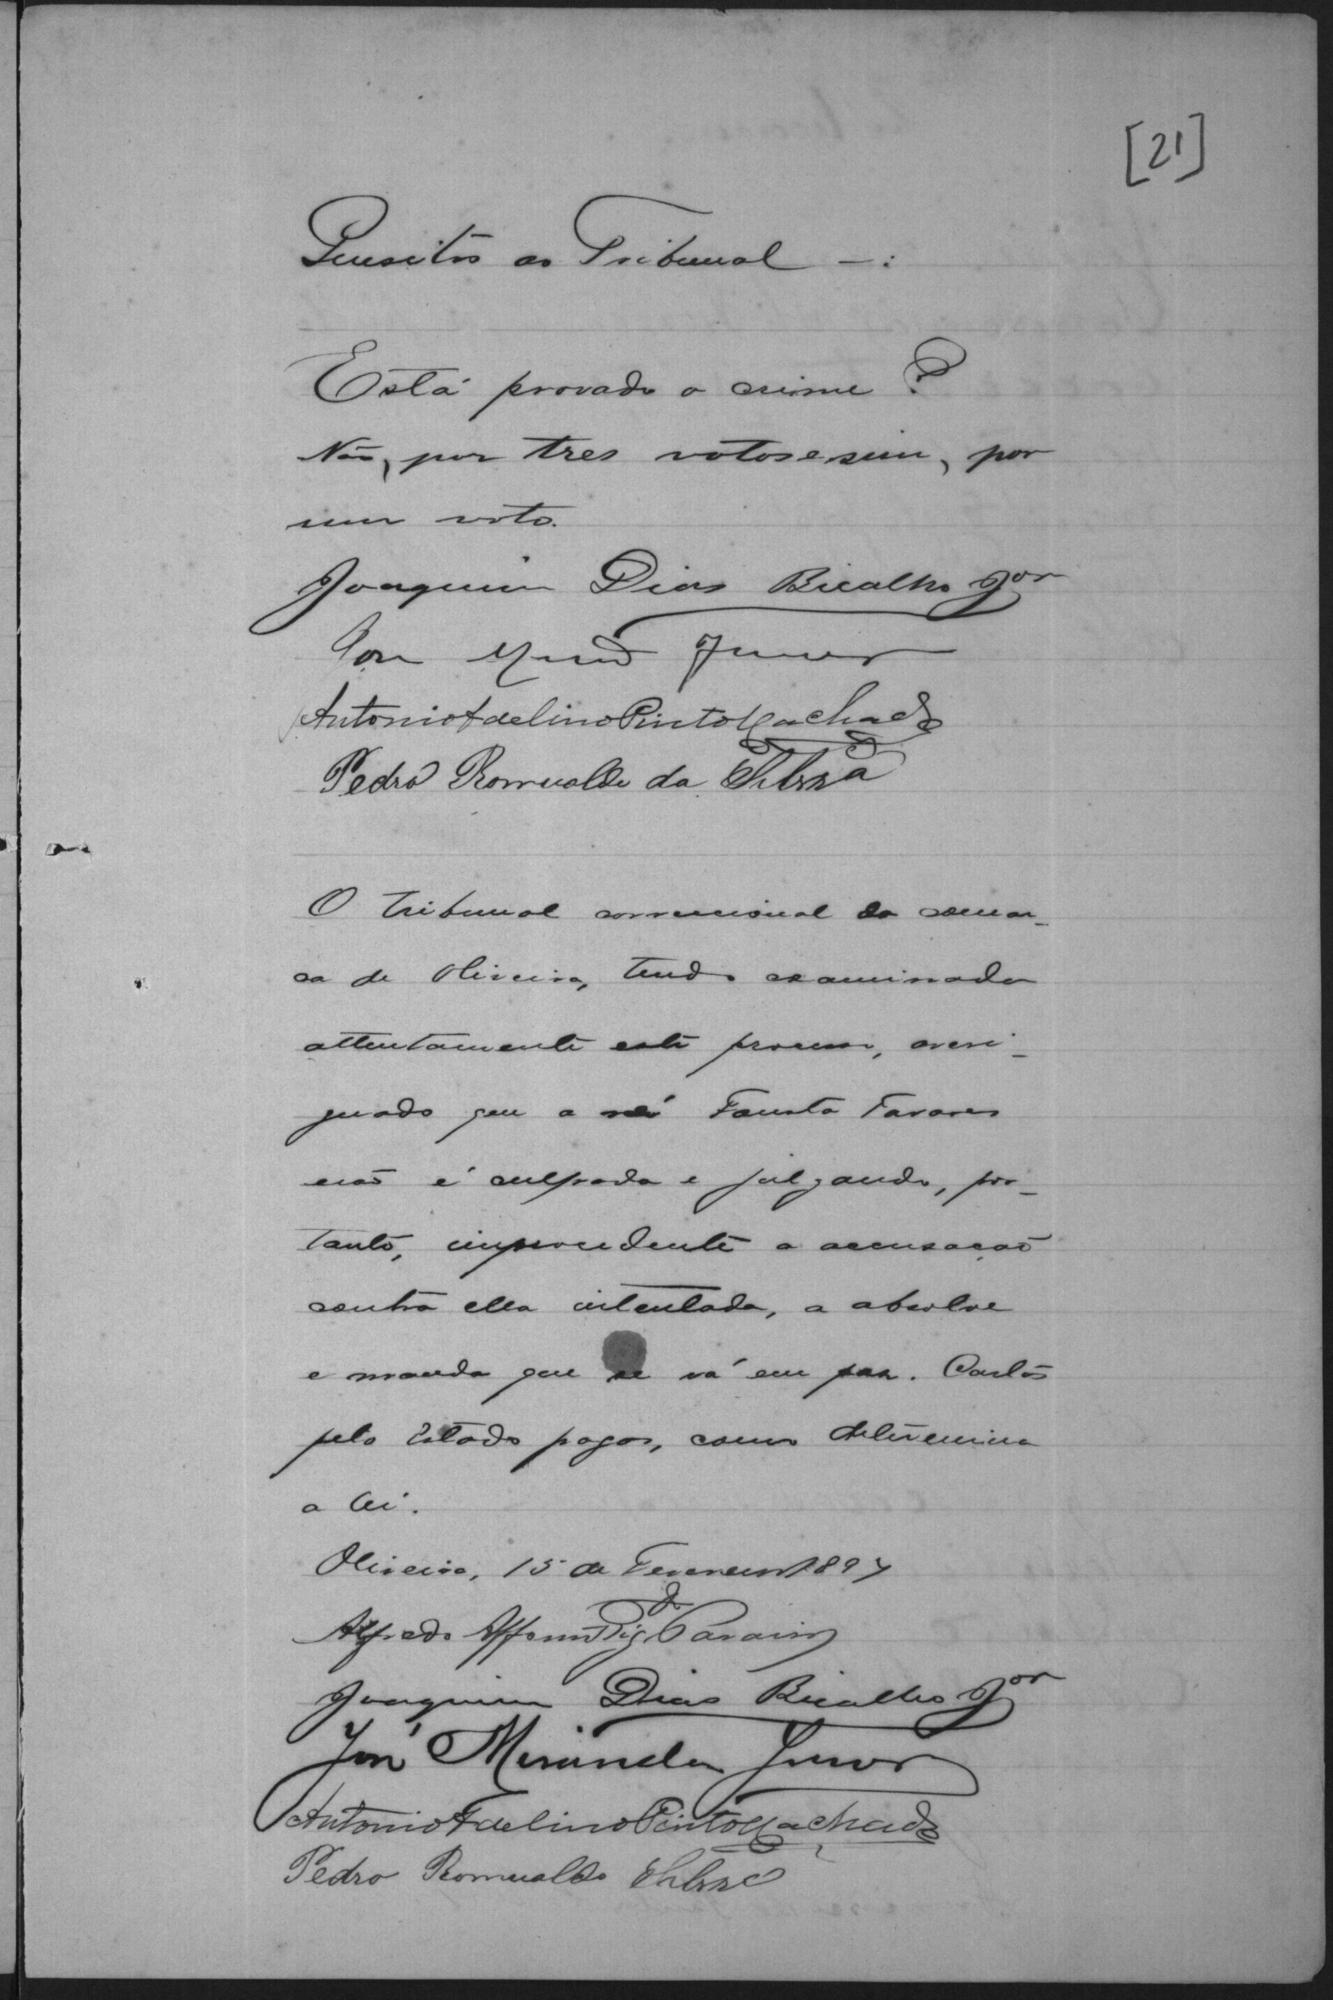 [21]
Quesitos ao Tribunal —:
Está provado o crime?
Não, por tres votos e sim, por
um voto.
Joaquim Dias Bicalho Jor
José Junior
Antonio Adelino Pinto Machado
Pedro Romualdo da Silva
O tribunal correccional da comar-
ca de Oliveira, tendo examinado
attentamente este processo, averi-
guado que a ré Fausta Tavares
não é culpada e julgando, por-
tanto, improcedente a accusação
contra ella intentada, a absolve
e manda que se vá em paz. Custas
pelo Estado pagas, como determina
a lei.
Oliveira, 15 de Fevereiro 1897
Alfredo Affonso
Joaquim Dias Bicalho Jor
José Miranda Junior
Antonio Adelino Pinto Machado
Pedro Romualdo Silva